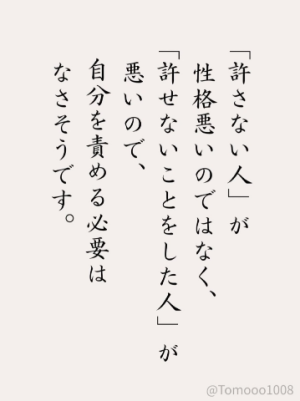 「許さない人」が
性格悪いのではなく、
「許せないことをした人」が
悪いので、
自分を責める必要は
なさそうです。
@Tomooo1008